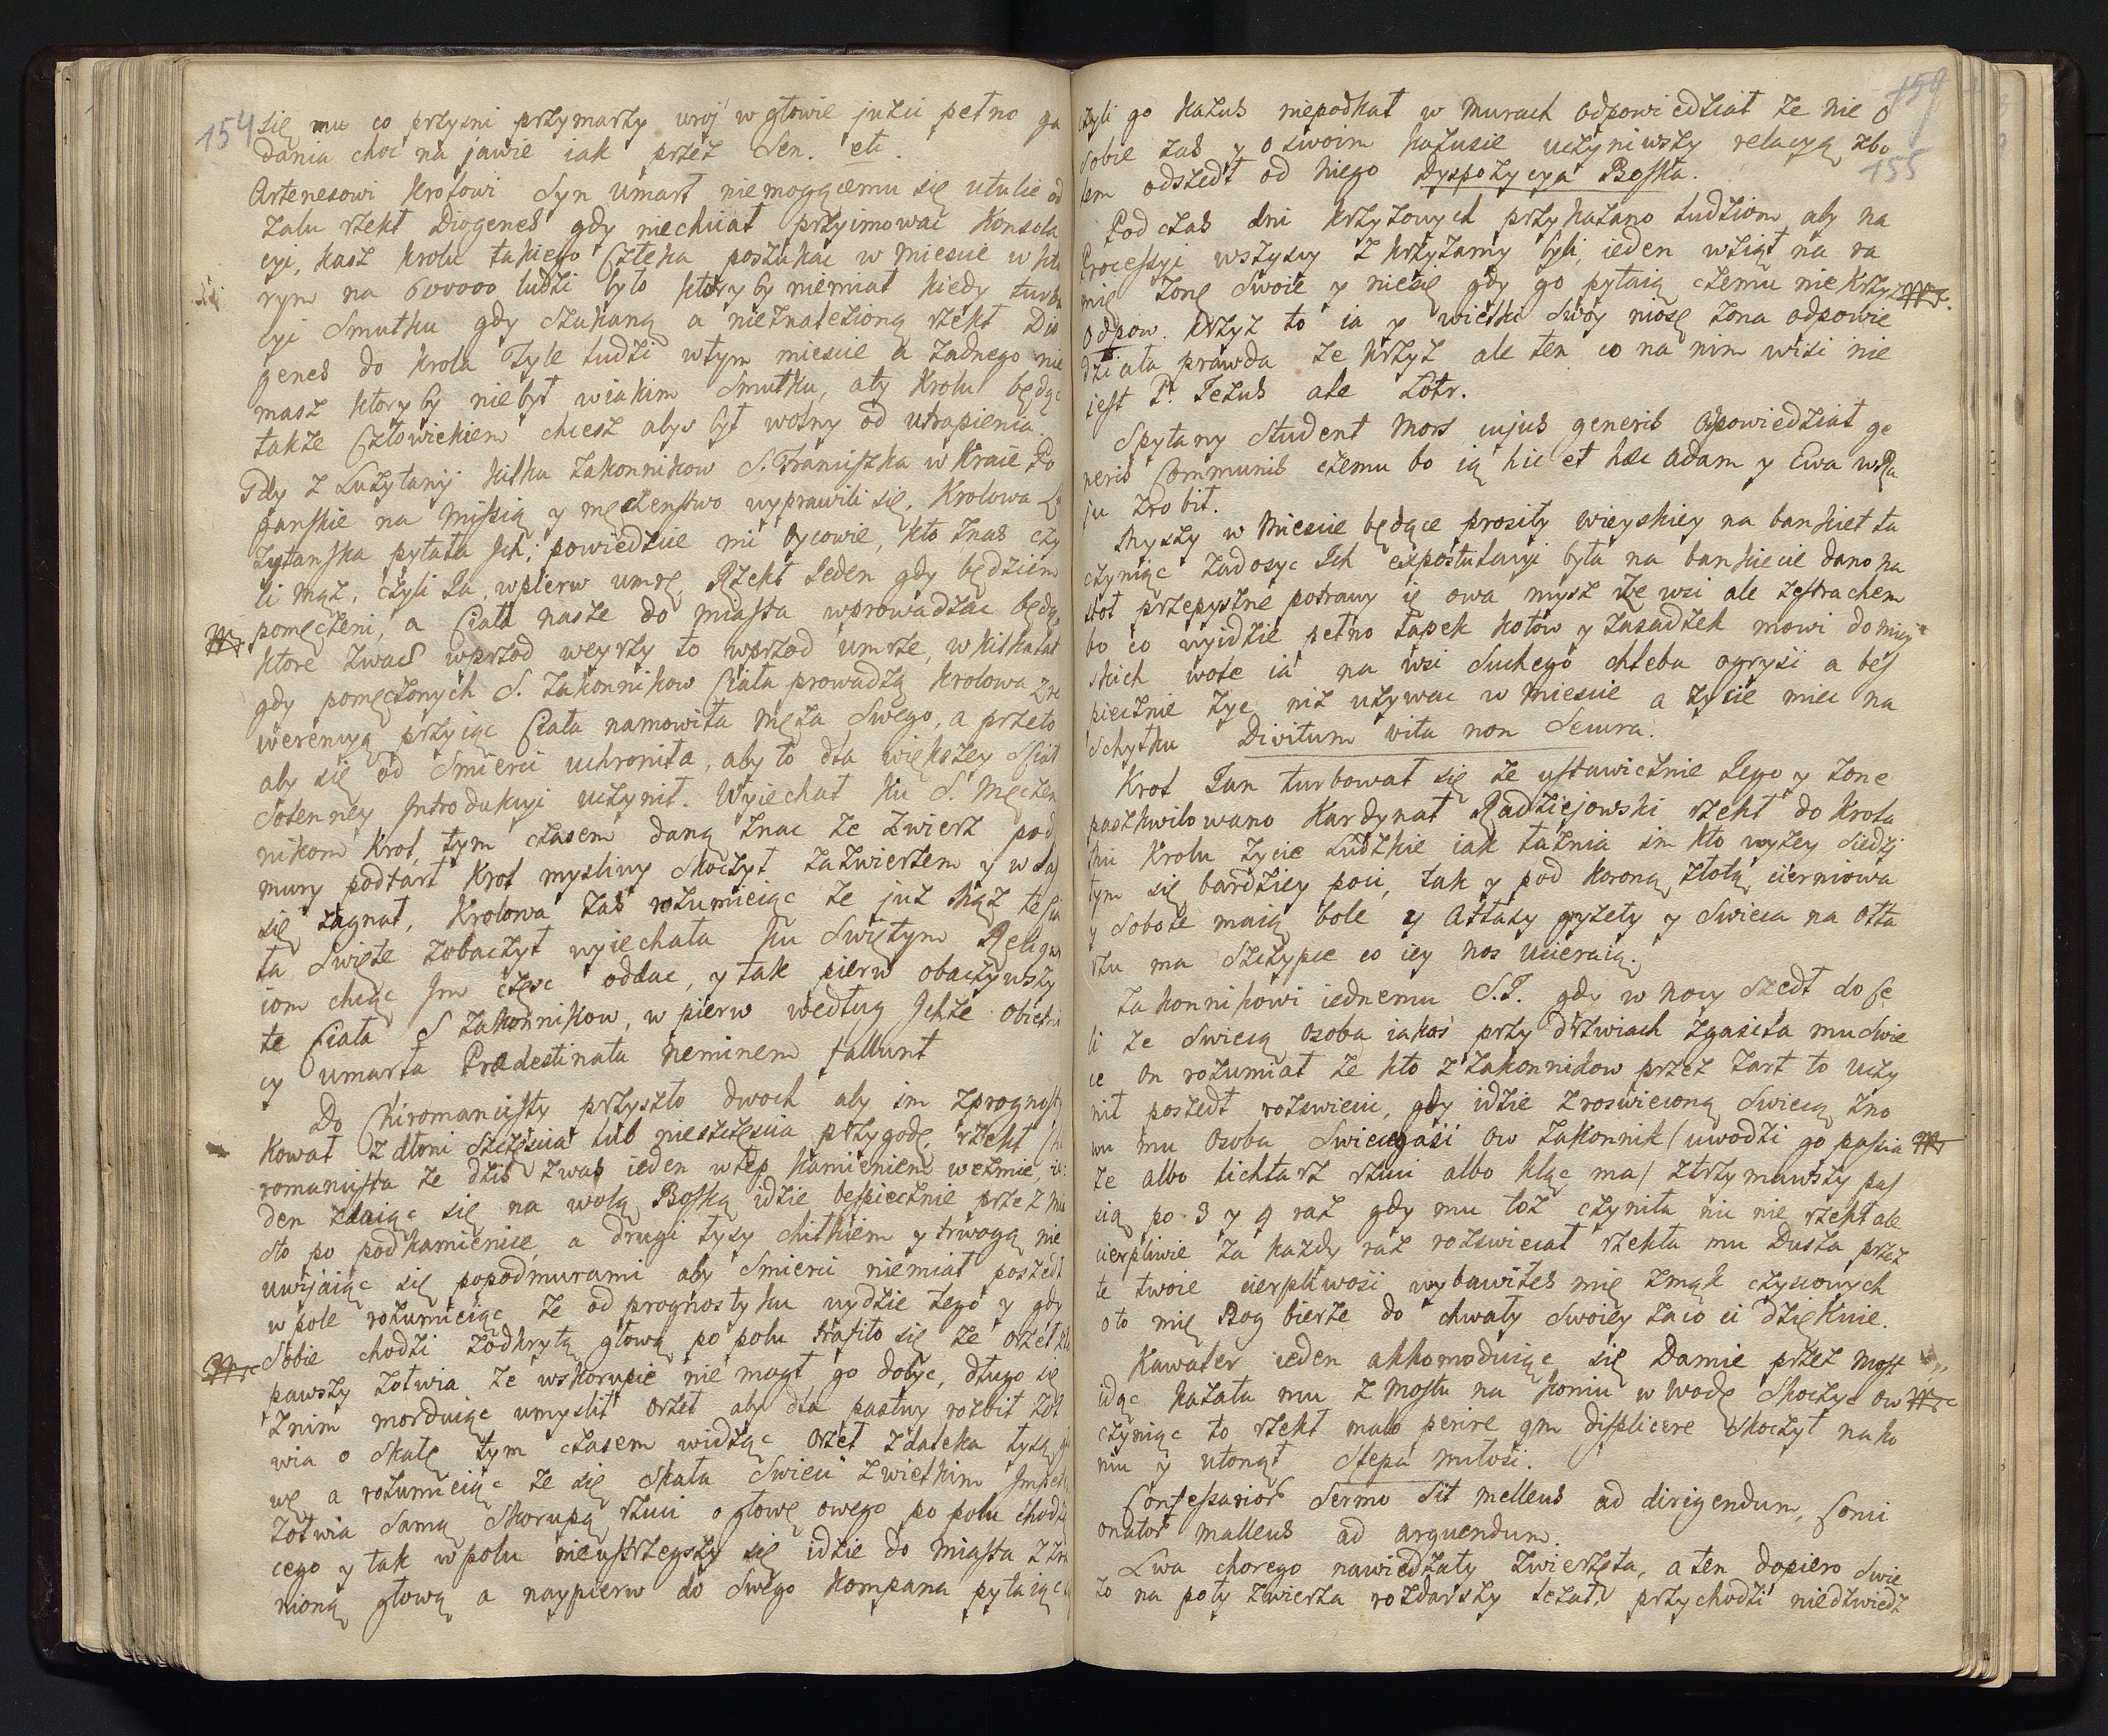 154
się mu co przysni przymarzy uroj w głowie juzci pełno ga
dania choc na jawie iak przez Sen. etc.
Artenesowi krolowi Syn umarł niemogącemu się utulic od
zalu rzekł Diogenes gdy niechciał przyimowac konsola
cyi, kasz krolu takiego Człeka poszukac w miescie w kto
rym na 600000 ludzi było ktory by niemiał kiedy turba
cyi Smutku gdy szukaną a nieznalezioną rzekł Dio
genes do krola Tyle ludzi wtym miescie a zadnego nie
masz ktory by niebył wiakim Smutku, aty krolu będąc
takze Człowiekiem chcesz abys był wolny od utrapienia.
Gdy z Luzytanij kilku zakonnikow S. Franciszka w kraie Po
ganskie na Missią y męczenstwo wyprawili się. Krolowa Lu
zytanska pytała Ich; powiedzcie mi Oycowie, kto znas czy
li mąz, czyli Ia, wpierw umrę. Rzekł Ieden gdy będziem
pomęczeni, a Ciała nasze do miasta wprowadzac będą,
ktore zwas wprzod weyrzy to wprzod umrze, w kilka lat
gdy pomęczonych S. zakonnikow Ciała prowadzą krolowa z re
werencyą przyiąc Ciała namowiła Męza Swego, a przeto
aby się od Smierci uchroniła, aby to dla większey
Solenney Introdukcyi uczynił. Wyiechał ku S. Męczen
nikom Krol, tym czasem daną znac ze zwierz pod
mury podtarł Krol mysliwy skoczył zazwierzem y w las
się zagnał, Krolowa zas rozumieiąc ze juz Mąz te Cia
ła Swięte zobaczył wyiechała ku Swiętym Religwi
iom chcąc Im czesc oddac, y tak pierw obaczywszy
te Ciała S zakonnikow, w pierw według Ichze obietni
cy umarła Praedestinata neminem fallunt
Do Chiromancisty przyszło dwoch aby im zprognosty
kował z dłoni szczęscia lub nieszczęscia przygodę, rzekł Chi
romancista ze dzis zwas ieden włep kamieniem wezmie, ie
den zdaiąc się na wolą Boską idzie bespiecznie przez mia
sto po podkamienice, a drugi łysy chitkiem y trwogą nie
uwijaiąc się popodmurami aby Smierci niemiał poszedł
w pole rozumieiąc ze od prognostyku uydzie tego y gdy
Sobie chodzi zodkrytą głową po polu trafiło się ze orzeł zła
pawszy zołwia ze wskorupie nie mogł go dobyc, długo się
znim morduiąc umyslił orzeł aby dla pastwy rozbił zoł
wia o skałę tym czasem widząc orzeł zdaleka łysą gło
wę a rozumieiąc ze się skała swieci zwielkim Impetem
zołwia samą skorupą rzuci o głowę owego po polu chodzą
cego y tak wpolu nieustrzegszy się idzie do miasta z zra
nioną głową a naypierw do Swego kompana pytaiąc
159
155
czyli go kazus niepodkał w murach odpowiedział ze nie o
sobie zas y o swoim kazusie uczyniwszy relacyą zbo
lem odszedł od niego Dyspozycya Boska.
Pod czas dni krzyzowych przykazano ludziom aby na
Processyi wszyscy z krzyzamy byli, ieden wziął na ra
mię zonę Swoie y niesie gdy go pytaią czemu nie krzyz
odpow. krzyz to ia y wielki swoy niosę zona odpowie
działa prawda ze krzyz ale ten co na nim wisi nie
jest P. Jezus ale Lotr.
Spytany Student Mors cujus generis odpowiedział ge
neris Communis czemu bo ią hic et haec Adam y Ewa wRa
ju zrobił.
Myszy w Miescie będące prosiły wieyskiey na bankiet ta
czyniąc zadosyc Ich expostulacyi była na bankiecie dano na
stoł przepyszne potrawy ie owa mysz ze wsi ale zestrachem
bo co wyidzie pełno łapek kotow y zasadzek mowi do miey
skich wole ia na wsi Suchego chleba ogrysc a bes
piecznie zyc niz uzywac w Miescie a zycie miec na
schyłku Divitum vita non Secura.
Krol Ian turbował się ze ustawicznie Iego y zone
paszkwilowano Kardynał Radziejowski rzekł do Krola
Krolu zycie ludzkie iak łaznia im kto wyzey siedzi
tym się bardziey poci, tak y pod koroną złotą cierniowa
y Sobole maią bole y Atłasy gyzety y Swieca na Ołta
rzu ma szczypce co iey nos ucieraią.
Zakonnikowi iednemu S.I. gdy w nocy szedł do Ce
li ze swiecą osoba iakas przy drzwiach zgasiła mu swie
ce on rozumiał ze kto z zakonnikow przez zart to uczy
nił poszedł rozswieci, gdy idzie zroswieconą Swiecą zno
wu mu osoba Swiecę gasi ow zakonnik (uwodzi go passia
ze albo lichtarz rzuci albo kląc ma) ztrzymawszy pas
sią po 3 y 4 raz gdy mu toz czyniła nic nie rzekł ale
cierpliwie za kazdy raz rozswiecał rzekła mu Dusza przez
te twoie cierpliwosci wybawiłes mię zmąk czyscowych
oto mię Bog bierze do chwały swoiey zaco ci dziękuie.
Kawaler ieden akkomoduiąc się Damie przez Most
idąc kazała mu z Mostu na koniu w wodę skoczyc ow
czyniąc to rzekł malo perire qm displicere skoczył na ko
niu y utonął Slepa miłosc.
Confessarior Sermo Sit melleus ad dirigendum, Conci
onator malleus ad arguendum.
Lwa chorego nawiedzały zwierzęta, a ten dopiero swie
zo na poły zwierza rozdarszy lezał, przychodzi niedzwiedz